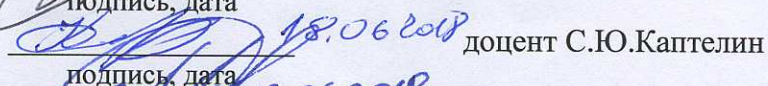 подпись, дата
18.06 2018 доцент С.Ю.Каптелин
подпись, дата